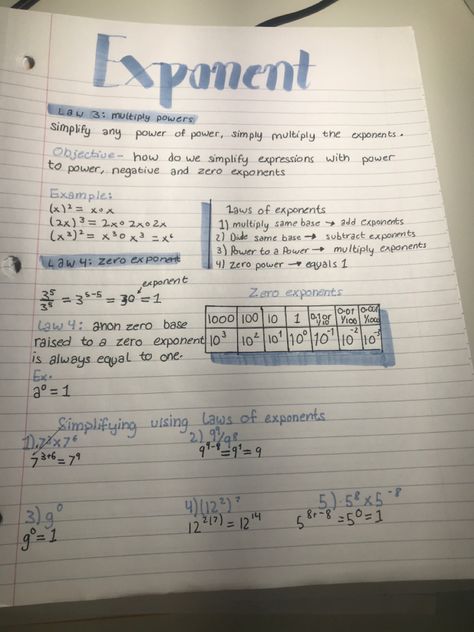 Exponent
Law 3: multiply powers
simplify any power of power, simply multiply the exponents.
Objective- how do we simplify expressions with power
to power, negative and zero exponents
Example:
(x)² = x∘x
(2x)³ = 2x∘2x∘2x
(x³)² = x³∘x³ = x⁶
Laws of exponents
1) multiply same base → add exponents
2) Divide same base → subtract exponents
3) Power to a Power → multiply exponents
4) zero power → equals 1
Law 4: zero exponent
exponent
3⁵/3⁵ = 3⁵⁻⁵ = 3⁰ = 1
Law 4: a non zero base
raised to a zero exponent
is always equal to one.
Ex.
a⁰ = 1
Zero exponents
1000 100 10 1 0.1 or 1/10 0.01 1/100 0.001 1/1000
10³ 10² 10¹ 10⁰ 10⁻¹ 10⁻² 10⁻³
Simplifying using Laws of exponents
1) 7³x7⁶
7³⁺⁶ = 7⁹
2) 9⁹/9⁸
9⁹⁻⁸ = 9¹ = 9
3) g⁰
g⁰ = 1
4) (12²)⁷
12²⁽⁷⁾ = 12¹⁴
5) 5⁸ x 5⁻⁸
5⁸⁺⁻⁸ = 5⁰ = 1